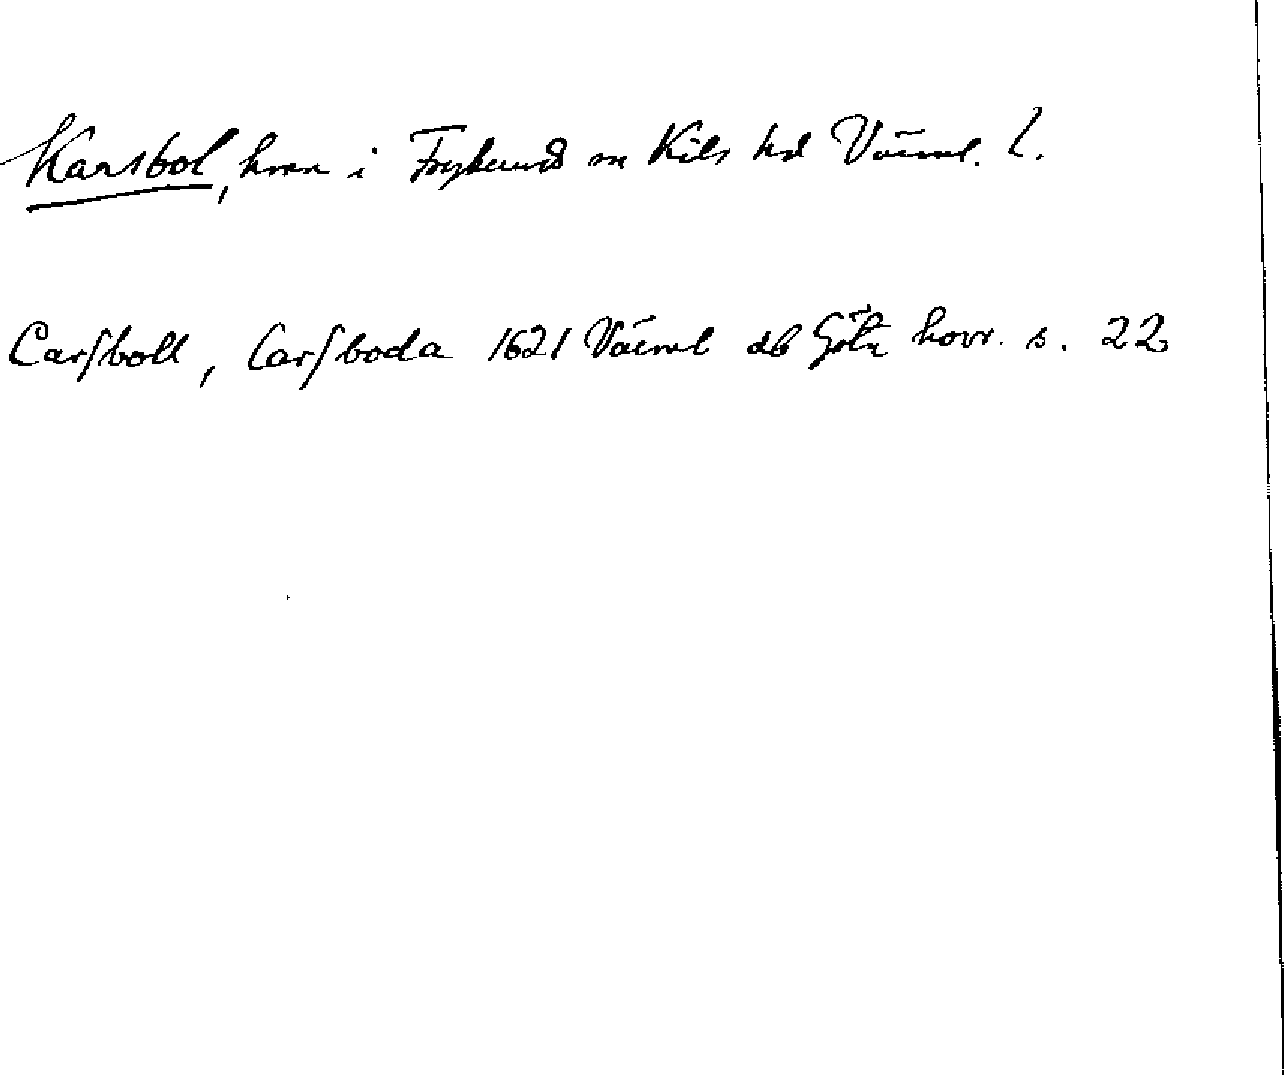 Karsbol, hmn i Frykerud sn Kils hd Värml. l.
Carsboll, Carsboda 1621 Värml db Göta hovr. s. 22